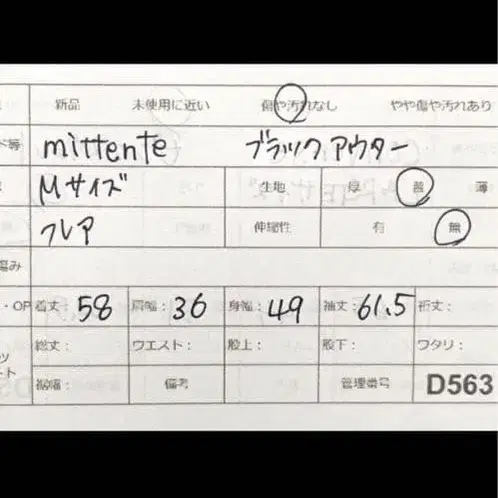 新品 未使用に近い 傷や汚れなし やや傷や汚れあり
ド等 mittente ブラックアウター
Mサイズ 生地 厚 普 薄
フレア 伸縮性 有 無
傷み
・OP 着丈：58 肩幅：36 身幅：49 袖丈：61.5 裄丈：
総丈： ウエスト： 股上： 股下： ワタリ：
ッ
ート
裾幅： 備考 管理番号 D563